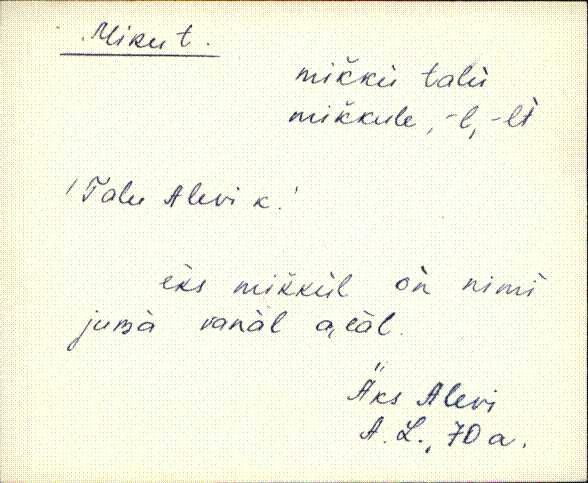 Miku t.
mikkü talu
mikkule, -l, -lt
/Talu Alevi k./
eks mikkül on nimi
juba vanal aeal.
Äks Alevi
A. L., 70 a.